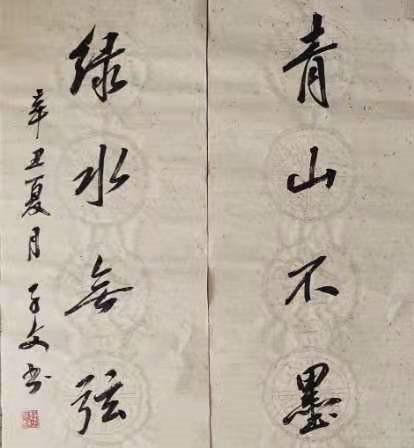 青山不墨
绿水無弦
辛丑夏月子文书